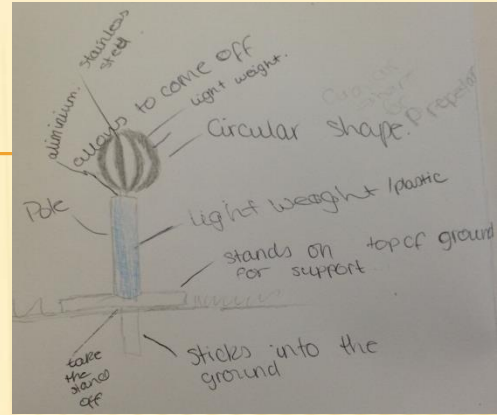 stainless
steel
aliminium.
allows to come off
light weight.
Circular shape.
propelar
Pole
light weight / plastic
stands on top of ground
for support
take
the
stand
off
sticks into the
ground